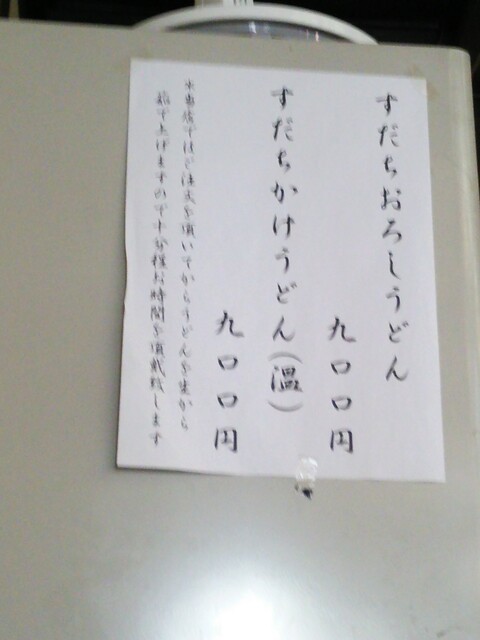 すだちおろしうどん
九〇〇円
すだちかけうどん(温)
九〇〇円
※当店ではご注文を頂いてからうどんを生から
茹で上げますので十分程お時間を頂戴致します